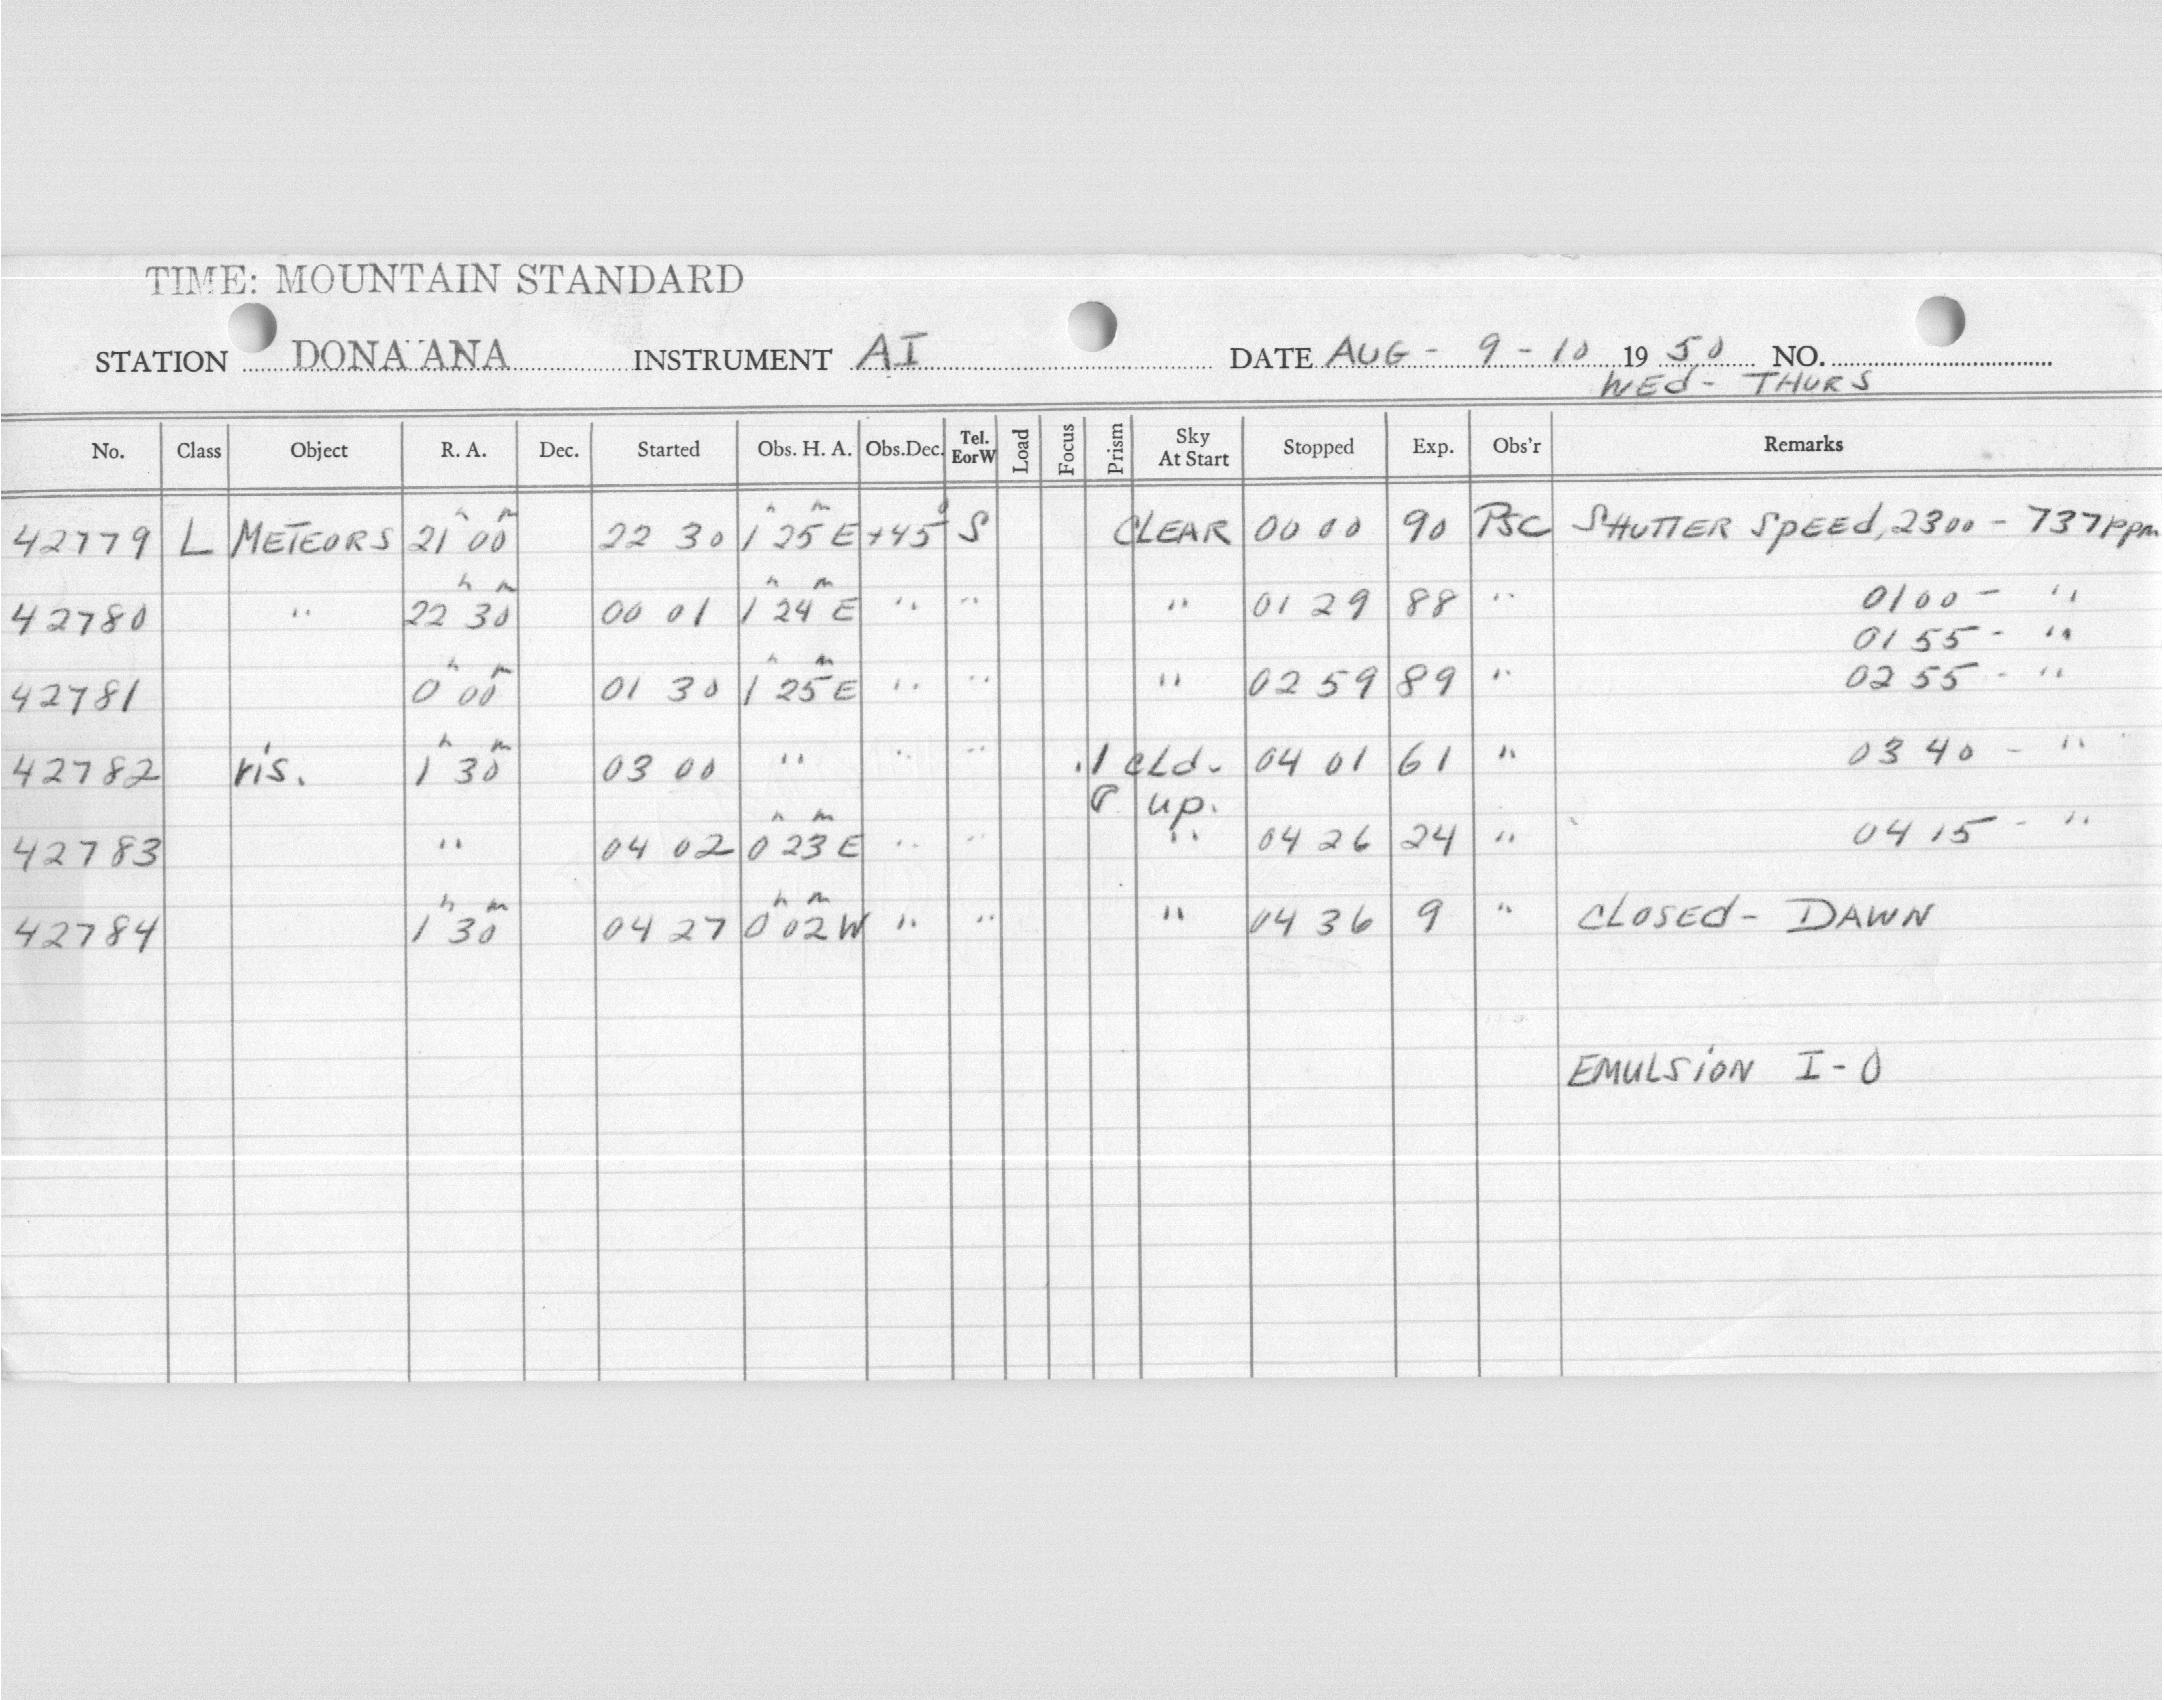 TIME: MOUNTAIN STANDARD
STATION DONA ANA INSTRUMENT AI DATE AUG - 9 - 10 19 50 NO.
WEd - THURS
No. Class Object R. A. Dec. Started Obs. H. A. Obs.Dec. Tel. EorW Load Focus Prism Sky At Start Stopped Exp. Obs'r Remarks
42779 L METEORS 21h 00m 22 30 1h 25m E +45° S CLEAR 00 00 90 PSC SHUTTER SpEEd, 2300 - 737 ppm
42780 " 22h 30m 00 01 1h 24m E " " " 01 29 88 " 0100 - "
0155 - "
42781 0h 00m 01 30 1h 25m E " " " 02 59 89 " 0255 - "
42782 ris. 1h 30m 03 00 " " " .1 cLd. 04 01 61 " 0340 - "
up.
42783 " 04 02 0h 23m E " " " 04 26 24 " 0415 - "
42784 1h 30m 04 27 0h 02m W " " " 04 36 9 " CLOSED - DAWN
EMULSION I-O